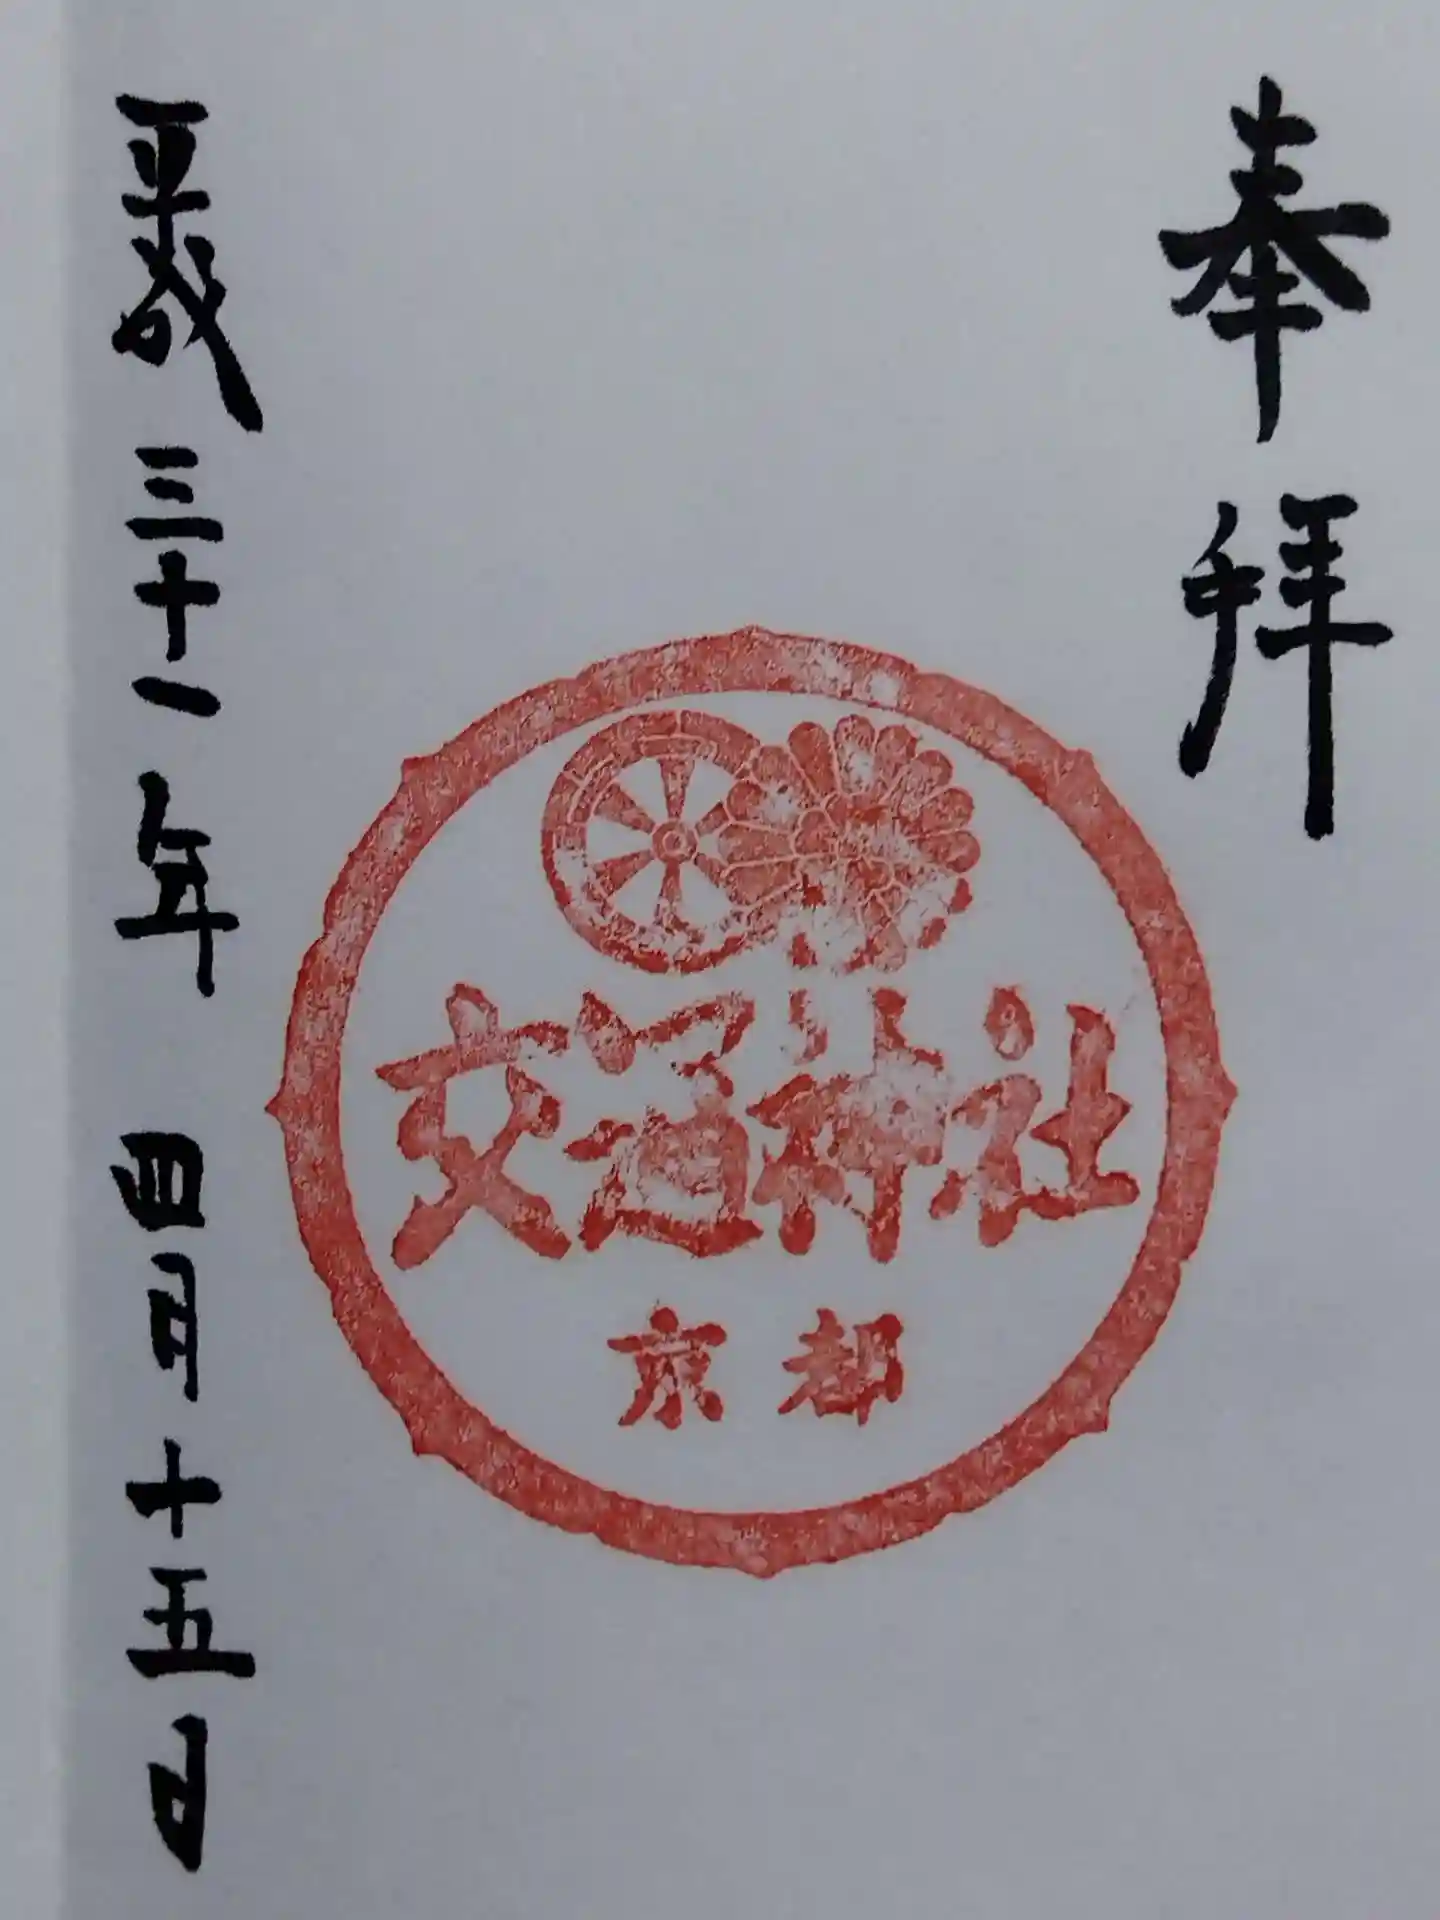 奉拝
交通神社
京都
平成三十一年 四月十五日